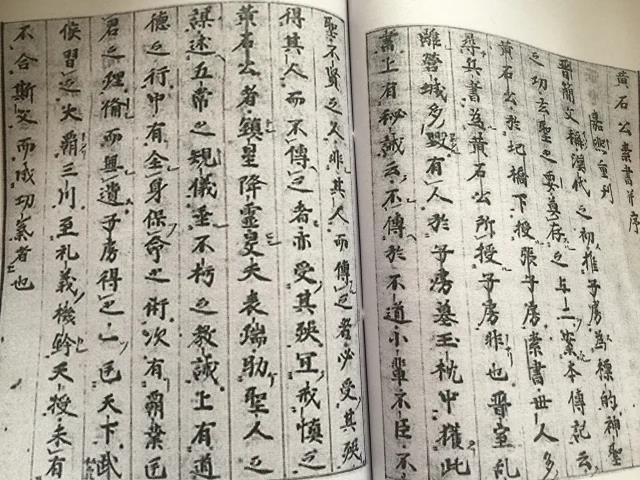 黄石公素書并序
嘉 重刊
晉簡文稱漢代之初推子房為標的神聖
之功玄聖之要莫存之与二案本傳記云
黄石公於圯橋下授張子房素書世人多
尋兵書為黄石公所授子房非也晋室乱
離營城多毀有人於子房墓玉枕中獲此
書上有秘誡云不傳於不道小輩不臣不
聖不賢之人非其人而傳之者必受其殃
得其人而不傳之者亦受其殃冝戒慎之
黄石公者鎮星降靈叟天表瑞助聖人之
謀述五常之規儀垂不朽之教誡上有道
德之行中有全身保命之術次有霸業匡
君之理脩而興遺子房得之一匡天下武
侯習之大霸三川至礼義機鈐天授未有
不合斯文而成功業者也